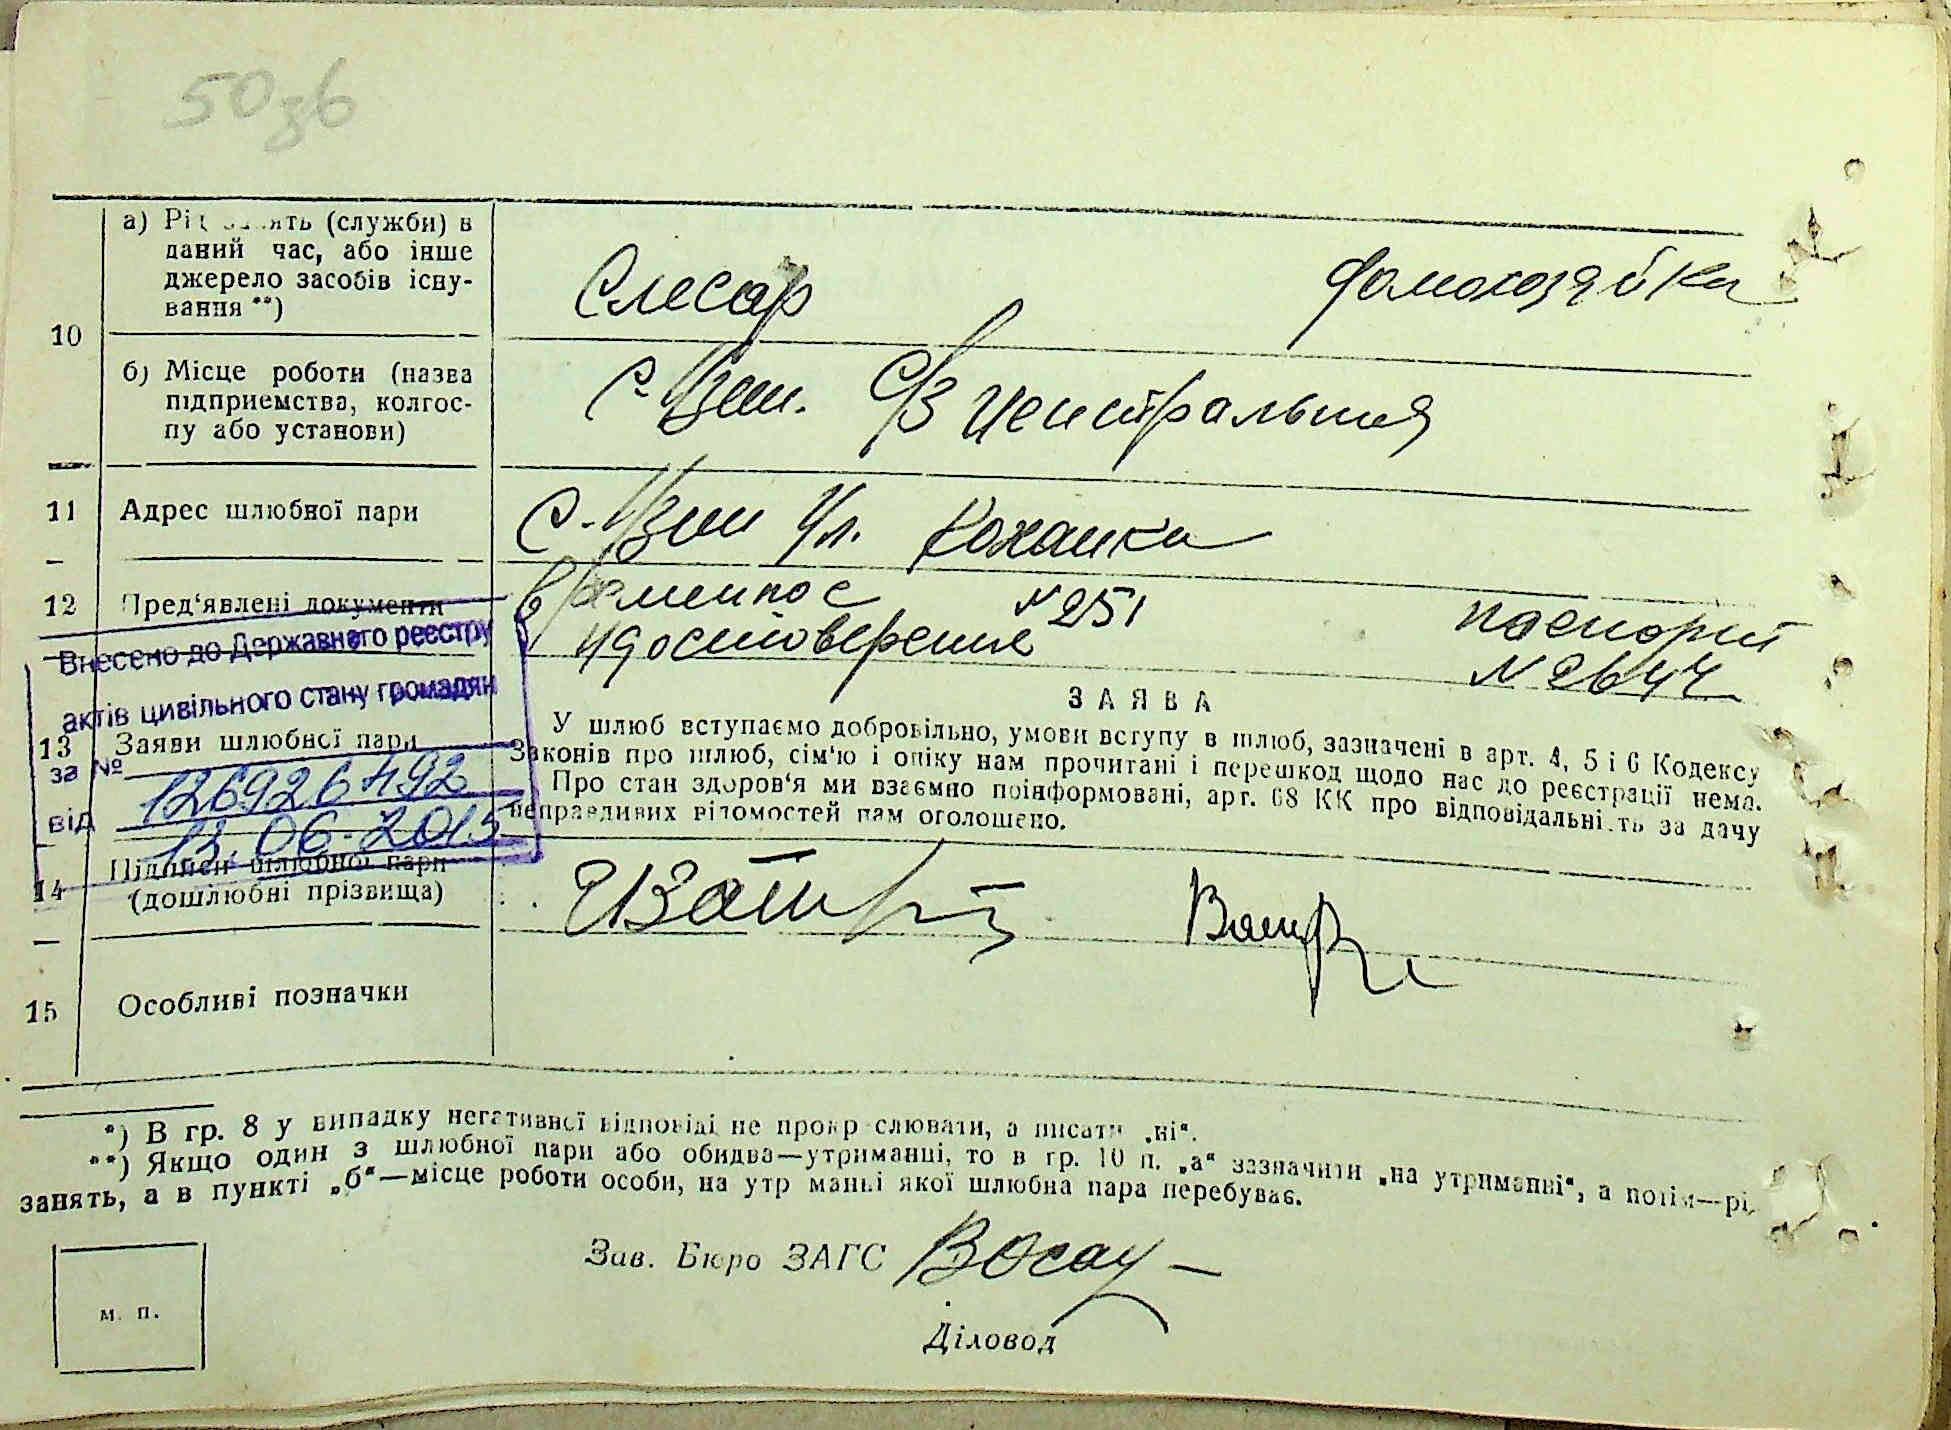 50зб
а) Рід занять (служби) в
даний час, або інше
джерело засобів існу-
вання **)
Слесар домохозяйка
10
б) Місце роботи (назва
підприємства, колгос-
пу або установи)
с. Узин. С/З Центральная
11 Адрес шлюбної пари
с. Узин Ул.
12 Пред'явлені документи
удостоверения №251
паспорт
№ 2644
Внесено до Державного реєстру
актів цивільного стану громадян
за №
від 13.06.2013
13 Заяви шлюбної пари
ЗАЯВА
У шлюб вступаємо добровільно, умови вступу в шлюб, зазначені в арт. 4, 5 і 6 Кодексу
Законів про шлюб, сім'ю і опіку нам прочитані і перешкод щодо нас до реєстрації нема.
Про стан здоров'я ми взаємно поінформовані, арт. 68 КК про відповідальність за дачу
неправдивих відомостей нам оголошено.
14 Підписи шлюбної пари
(дошлюбні прізвища)
15 Особливі позначки
*) В гр. 8 у випадку негативної відповіді не прокреслювати, а писати „ні“.
**) Якщо один з шлюбної пари або обидва—утриманці, то в гр. 10 п. „а“ зазначити „на утриманні“, а потім—рід
занять, а в пункті „б“—місце роботи особи, на утриманні якої шлюбна пара перебуває.
Зав. Бюро ЗАГС
Діловод
м. п.